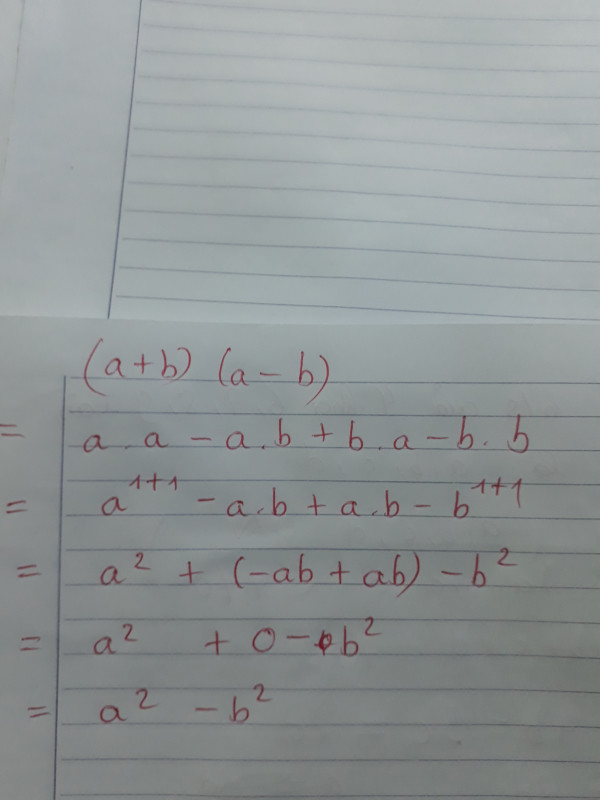 (a+b) (a-b)
= a.a - a.b + b.a - b.b
= a¹⁺¹ - a.b + a.b - b¹⁺¹
= a² + (-ab + ab) - b²
= a² + 0 - b²
= a² - b²